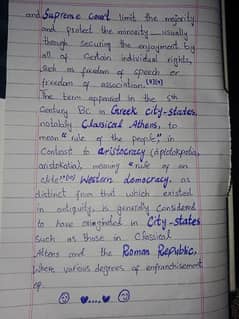 and Supreme Court limit the majority
and protect the minority — usually
through securing the enjoyment by
all of certain individual rights,
such as freedom of speech or
freedom of association.
The term appeared in the 5th
century BC in Greek city-states,
notably Classical Athens, to
mean "rule of the people" in
contrast to aristocracy
meaning "rule of an
elite" Western democracy, as
distinct from that which existed
in antiquity, is generally considered
to have originated in City-states
such as those in Classical
Athens and the Roman Republic,
where various degrees of enfranchisement
of